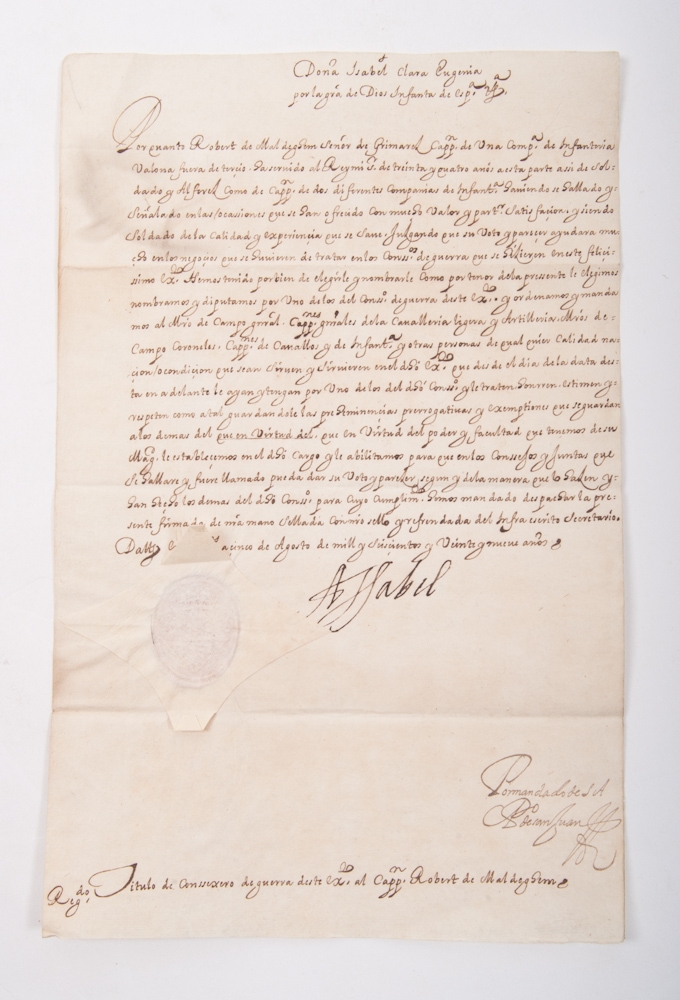 Doña Isabel Clara Eugenia
por la grã de Dios Infanta de Espª. &ª.
Por quanto Robert de Maldeghem Señor de Grimarel Cappn. de Una Compª. de Infanteria
Valona fuera de tercio. ha seruido al Rey mi Sr. de treinta y quatro años a esta parte assi de Sol-
dado y Alferez como de Cappn. de dos diferentes Companias de Infantª. hauiendose hallado y
Señalado en las ocasiones que se han ofrecido con mucho Valor y partr. Satisfacion. y siendo
Soldado de la Calidad y experiencia que se saue. Juzgando que su Voto y parecer ayudara mu-
cho en los negoçios que se huuieren de tratar en los Conssos. de guerra que se hizieren en este felici-
ssimo exto. Hemos tenido por bien de elegirle y nombrarle Como por tenor de la presente le elegimos
nombramos y diputamos por Uno de los del Consso. de guerra deste exto. y ordenamos y manda
mos al Mro. de Campo grral. Cappnes. grrales de la Caualleria ligera y Artilleria. Mros. de
Campo Coroneles. Cappnes. de Cauallos y de Infantª. y otras personas de qual quier Calidad na-
çion o condicion que sean siruen y siruieren en el dho exto. que desde el dia de la data des-
ta en adelante le ayan y tengan por Uno de los del dho Consso. y le traten. honrren. estimen y
respeten como a tal guardandole las preheminençias prerrogatiuas y exemptiones que se guardan
a los demas del que en Virtud del. que en Virtud del poder y facultad que tenemos de su
Magd. le establecemos en el dho Cargo y le abilitamos para que en los Consejos y Juntas que
se hallare y fuere llamado pueda dar su Voto y parecer segun y de la manera que lo hazen y
han hecho los demas del dho Consso. para cuyo Cumplimto. hemos mandado despachar la pre-
sente firmada de nra mano Sellada con nro sello y refrendada del Infra escrito Secretario.
Datt. a cinco de Agosto de mill y Seiscientos y Veinte y nueue años
A Isabel
Por mandado de S A
Po. de San Juan
Regdo. Titulo de Conssexero de guerra deste exto. al Cappn. Robert de Maldeghem